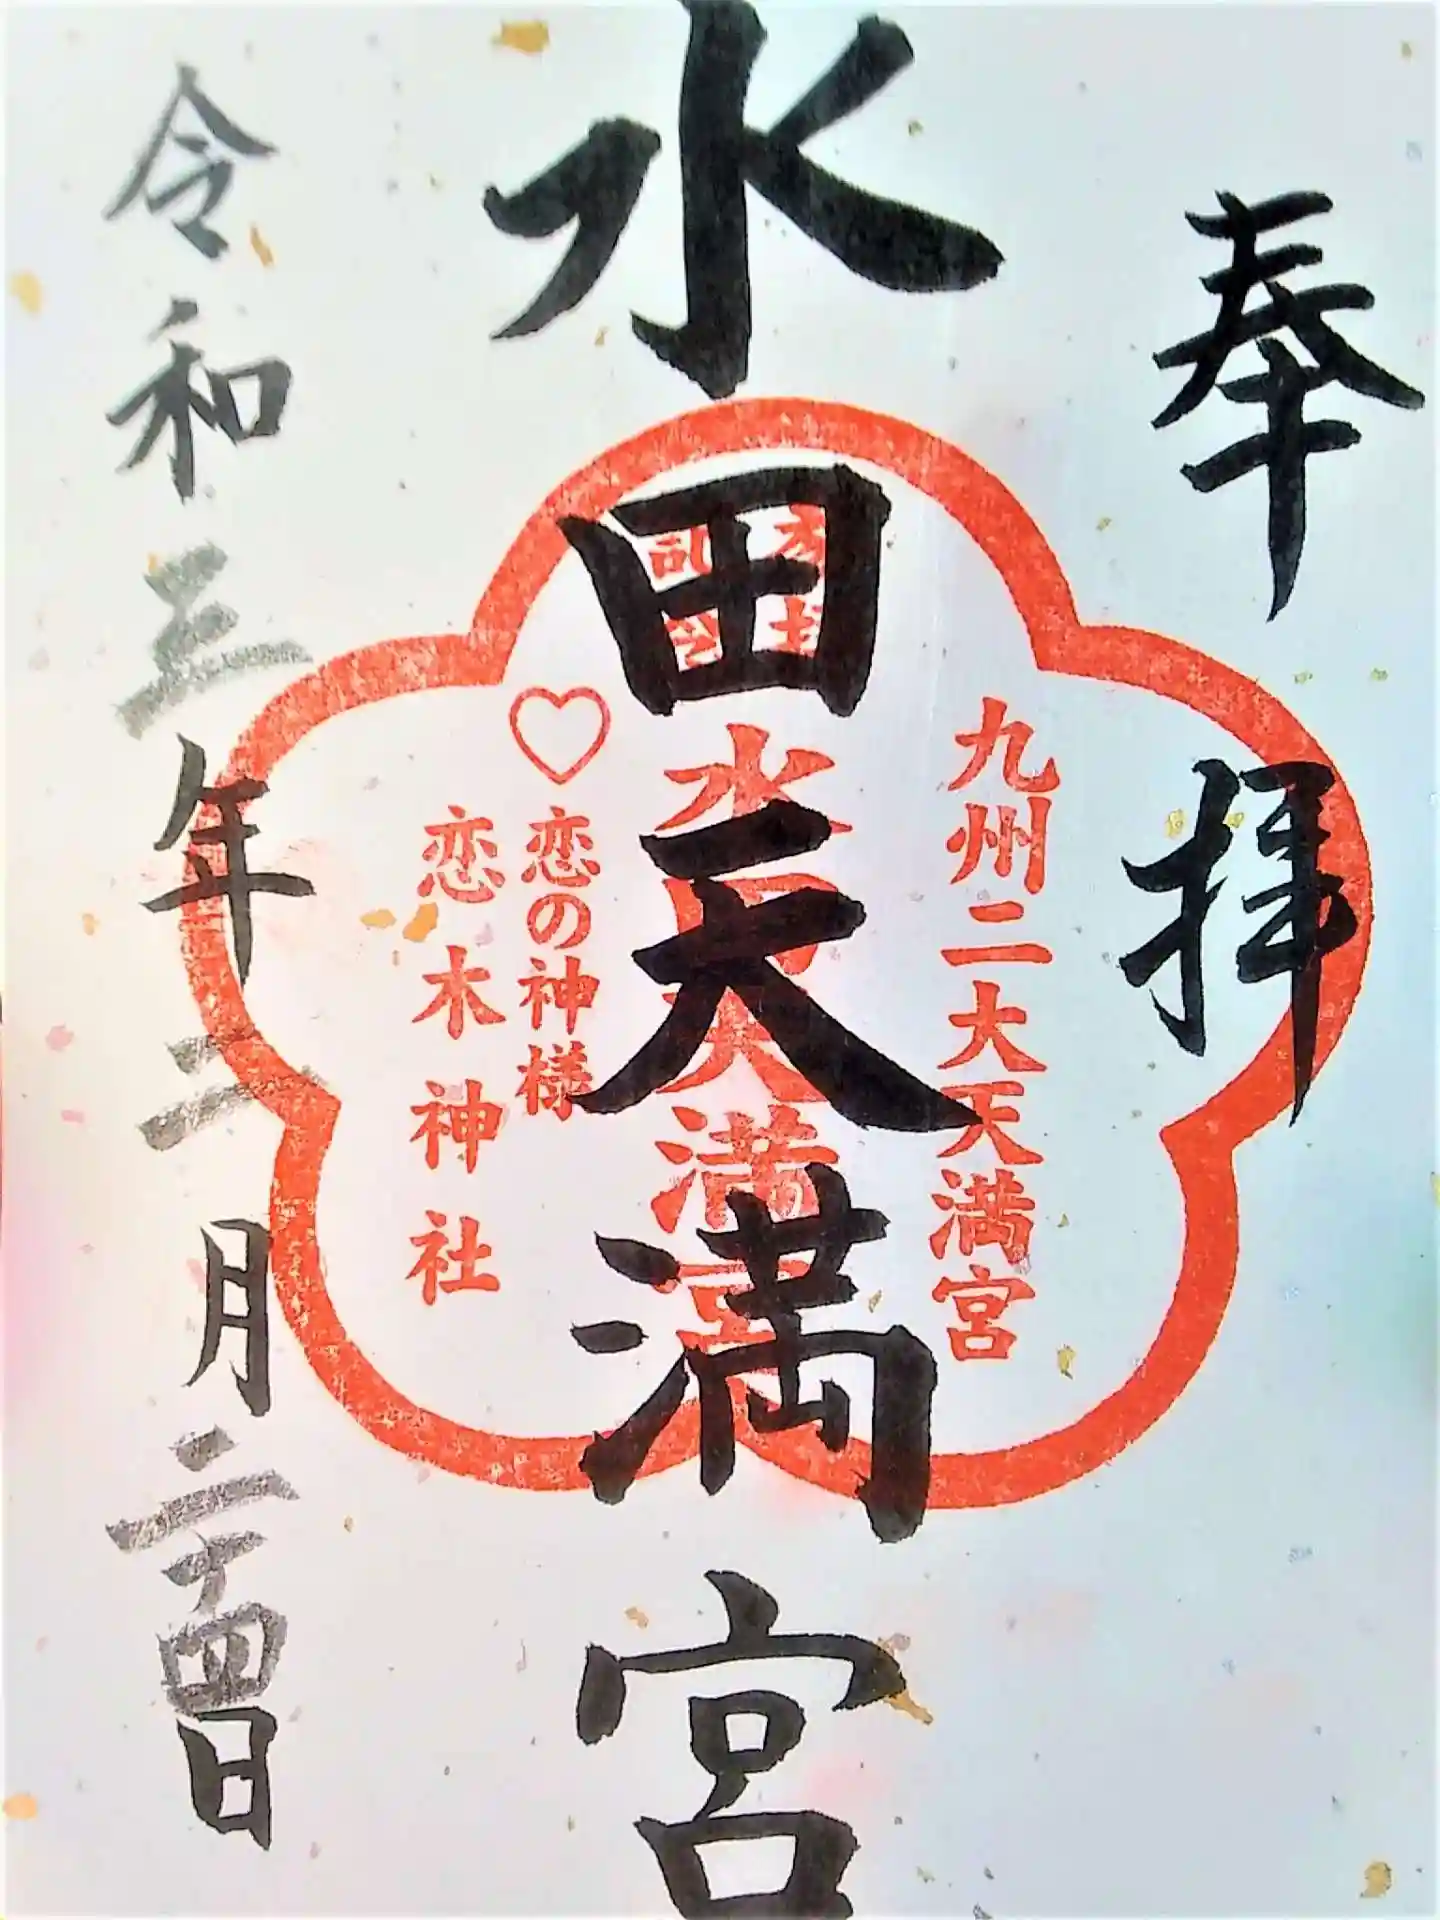 奉拝
九州二大天満宮
水田天満宮
水田天満宮
恋の神様
恋木神社
令和三年二月二十四日